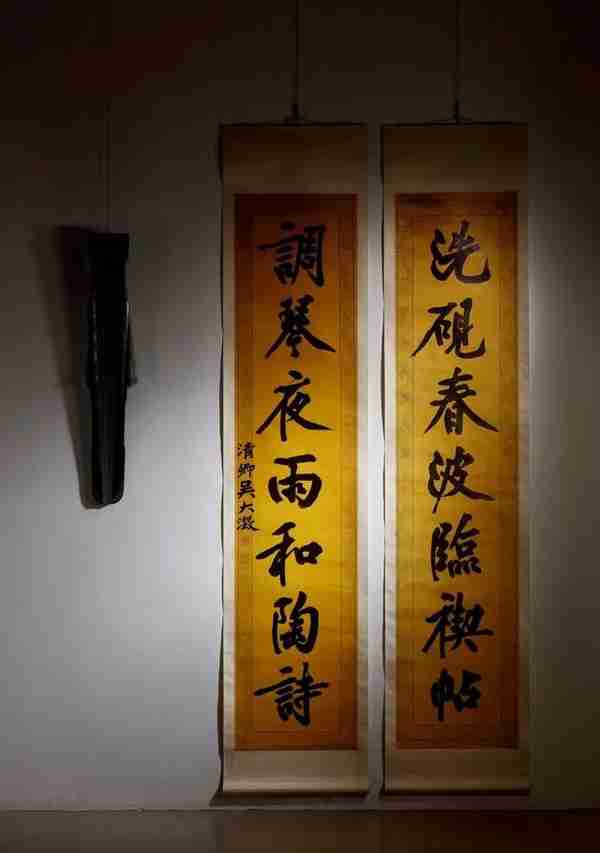 洗硯春波臨禊帖
調琴夜雨和陶詩
清卿吳大澂